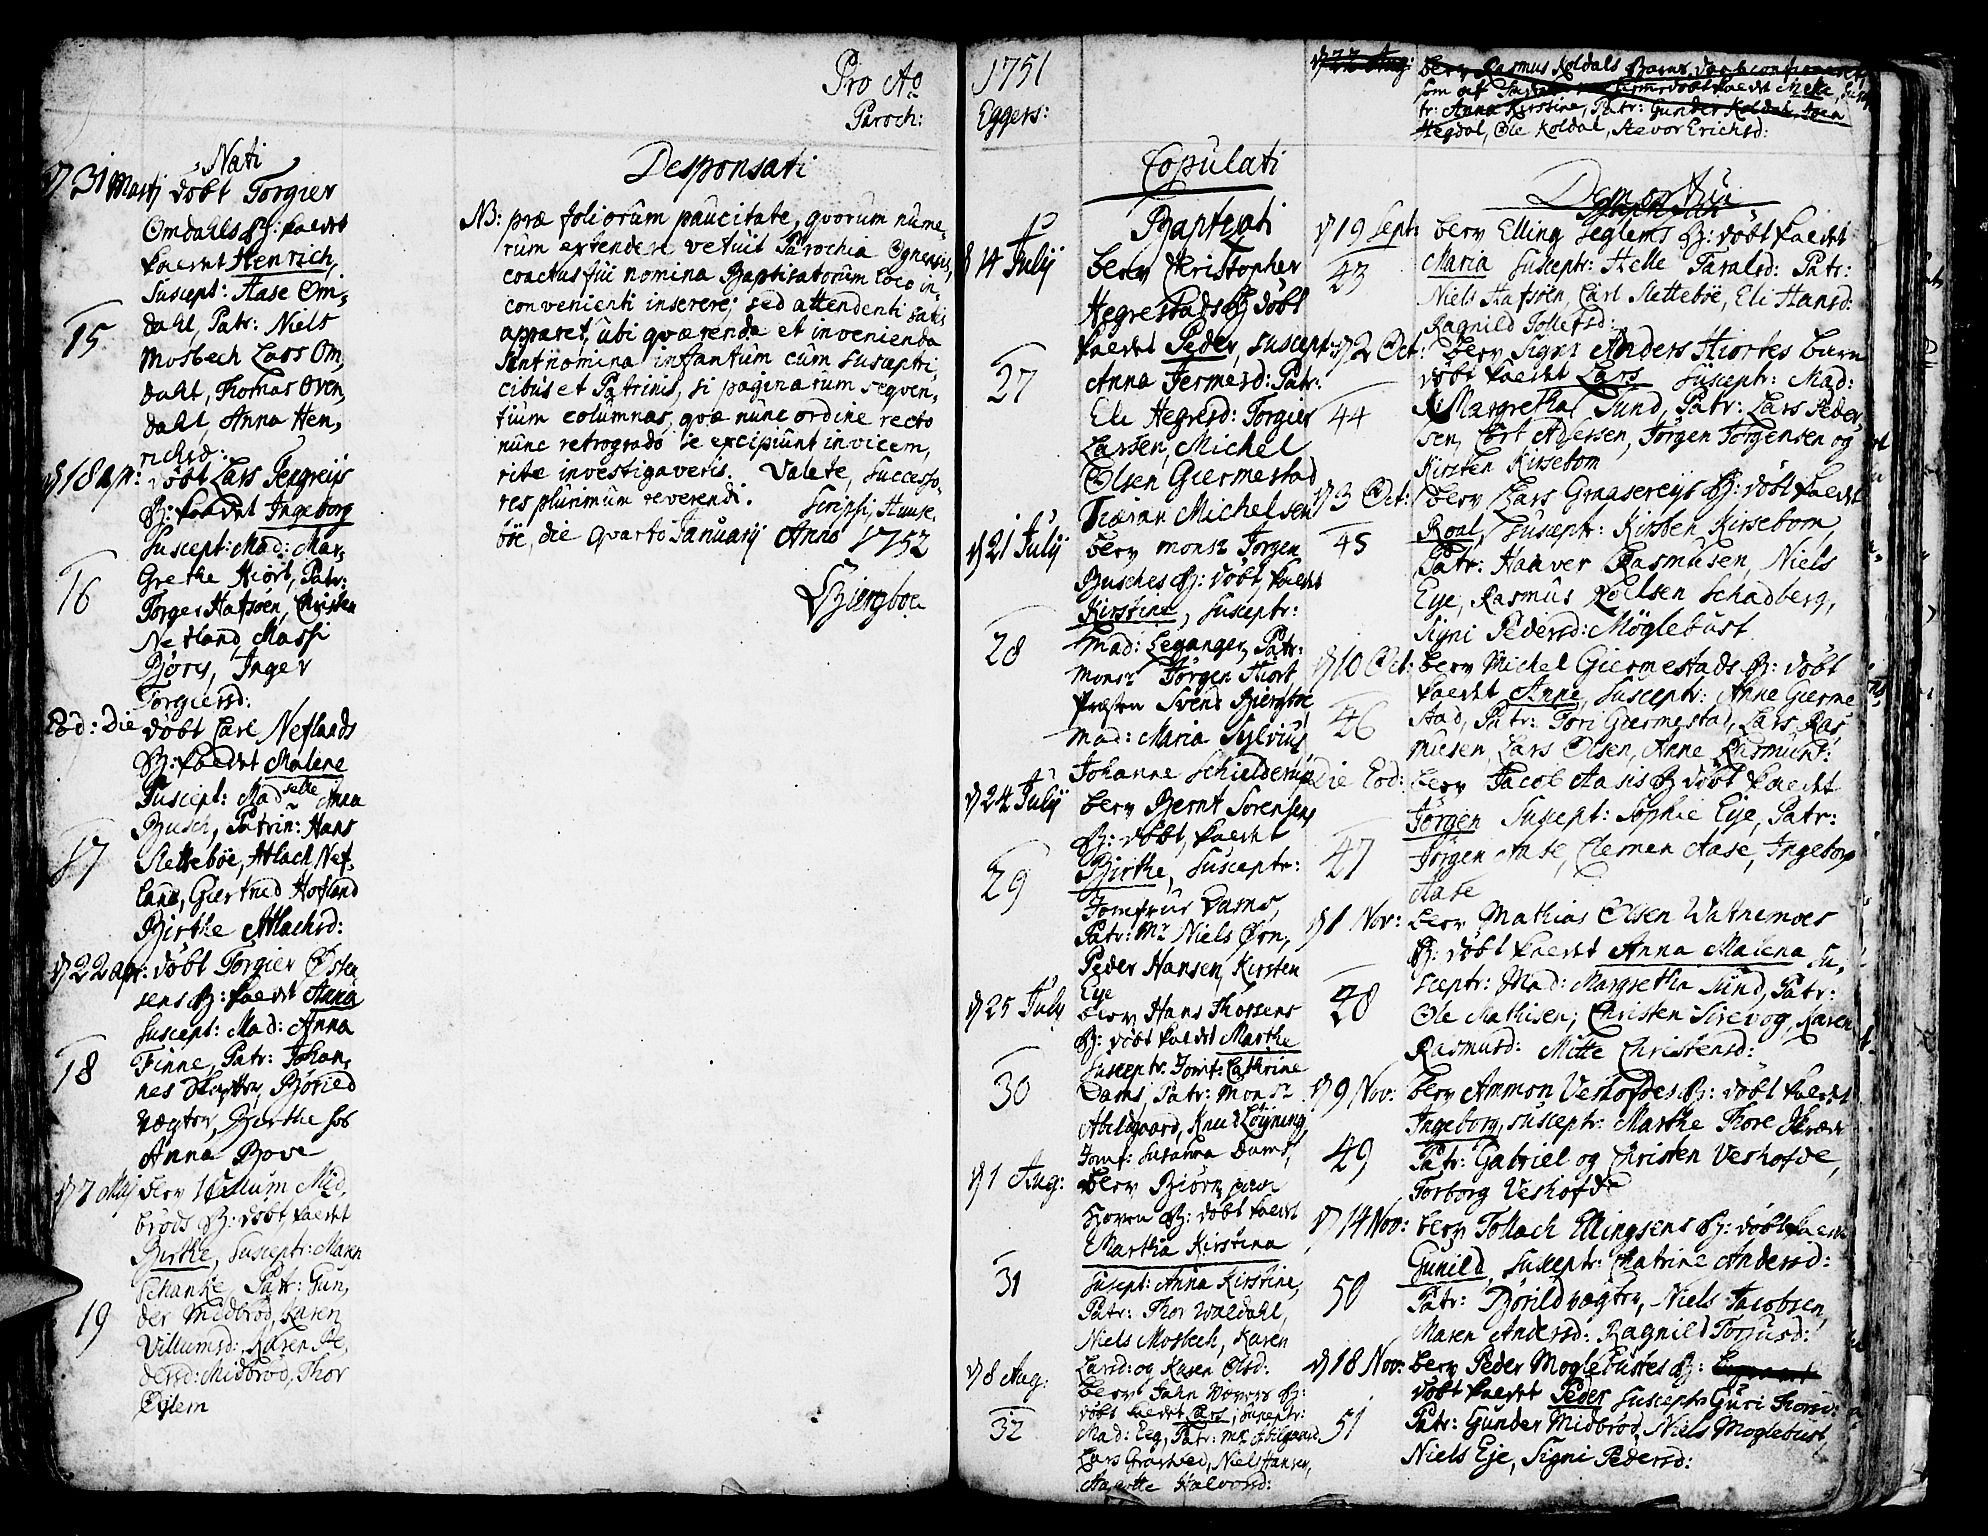 Pro Ao
Paroch:
Nati
d 31 Martj døbt Torgier
Omdahls B: kaldet
Henrich,
Suscept: Aase Om-
dahl, Patr: Niels
15
Mosbech Lars Om
dahl, Thomas Oven
dahl, Anna Hen,
richsd:
d 18 apr: døbt Lars Tengreijs
B: kaldet Ingeborg
Suscept: Mad: Mar-
Grethe Hiört, Patr:
16
Torger Hafsöen, Christen
Netland Massi
Torgiersd:
Eod: Die døbt Carl Netlands
B: kaldet Malene
Suscept: Madselle Anna
Busch, Patrin: Hans
17
Slettebøe, Atlach Net-
land, Giertrud Hofland
Birthe Atlachsd:
d 22 apr: døbt Torgier Østen
sens B: kaldet Anna
Suscept: Mad: Anna
18
Finne, Patr: Johan,
Anna Bove
d 7 Maj blev Willum Mid,
brøds B: døbt kaldet
Birthe, Susceptr: Maren
Schanke, Patr: Gun,
19
der Midbrød, Karen
Villumsd: Karen Pe,
dersd: Midbrød, Thor
Øglem
Desponsati
NB: præ foliorum paucitate, qvorum nume-
rum extendere vetuit Parochia Ognensis,
coactus fui nomina Baptisatorum loco in-
convenienti inserere; sed attendenti satis
apparet, ubi qværenda et invenienda
sint nomina infantum cum susceptri
cibus et Patrinis, si paginarum seqven-
tium columnas, qvæ nunc ordine recto
nunc retrogrado se excipiunt invicem,
rite investigaveris. Valete, Successo-
res plurimum reverendi. Scripsi, Huuse
bøe, die Qvarto Januarij Anno 1752
SBiergboe
1751
Eggers:
Copulati
Baptizati
d 14 Julij blev Christopher
Hegrestads B døbt
kaldet Peder, Suscept:
27
Anna Jermesd: Patr:
Eli Hegresd: Torgier
Larsen, Michel
Olsen Giermestad
Michelsen
d 21 Julij blev monsr Jörgen
Busches B: døbt kaldet
Kirstine, Susceptr:
28
Mad: Leganger, Patr:
Monsr Jörgen Hiort
Præsten Svend Biergboe
Mad: Maria Sylvius
Johanne Schielderup
d 24 Julij blev Bernt Sorensens
B: døbt, kaldet
29
Birthe, Susceptr:
Jomfrue Dams,
Patr: Mr Niels Örn,
Peder Hansen, Kirsten
Eje
d 25 July blev Hans Thossens
B: døbt kaldet Marthe
Susceptr: Jomf: Cathrine
30
Dams, Patr: Monsr
Abildgaard, Knud Löyning
Jomf: Susanna Dams,
d 1 Aug: blev Biörn
Hoven B: døbt kaldet
Martha Kirstina
31
Suscept: Anna Kirstine,
Patr: Thor Waldahl,
Niels Mosbech, Karen
Larsd: og Karen Olsd:
d 8 Aug: blev Jahn Wovers B:
døbt kaldet Lars, Susceptr:
32
Mad: Eeg, Patr: Mr Abilgaard
Lars Grastved, Niels Hansen,
Halvorsd:
d 22 Aug: blev Rasmus Koldals Barns daab confirmeret
som af
tr: Anna Kirstine, Patr: Gunder Koldal, Sven
Hegdal, Ole Koldal, Stevor Erichsd:
Demortui
d 19 Sept: blev Elling Seglems B: døbt kaldet
43
Maria Susceptr: Helle Taralsd: Patr:
Niels Hafsöen, Carl Slettebøe, Eli Hansd:
Ragnild Tollefsd:
d 2 Oct: blev Signr Anders Hiortes barn
døbt kaldet Lars Susceptr: Mad:
44
Margretha Sund, Patr: Lars Peder-
sen, Cort Adsersen, Jørgen Jørgensen og
Kirsten Kirsebom
d 3 Oct: blev Lars Graasereijs B: døbt kaldet
45
Roal, Susceptr: Kirsten Kirsebom,
Patr: Haaver Rasmusen, Niels
Eye, Rasmus Roelsen Schadberg,
Signi Pedersd: Møglebust
d 10 Oct: blev Michel Giermestads B: døbt
kaldet Anne, Susceptr: Anne Gierme
46
stad, Patr: Tori Giermestad, Lars Ras
musen, Lars Olsen, Anne Rasmusd:
Die Eod: blev Jacob Aases B døbt kaldet
Jørgen Suscept: Sophie Eje, Patr:
47
Jørgen Aase, Clemen Aase, Ingeborg
Aase
d 1 Nov: blev Mathias Olsen Watnemoes
B: døbt kaldet Anna Malena Su-
48
sceptr: Mad: Margretha Sund, Patr:
Ole Mathisen, Christen Sirevog, Karen
Rasmusd: Mette Christensd:
d 9 Nov: blev Ammon Veshofdes B: døbt kaldet
Ingeborg, Susceptr: Marthe Thore Skræder
49
Patr: Gabriel og Christen Veshofde,
Torborg Veshofde
d 14 Nov: blev Tollach Ellingsens B: døbt kaldet
Gunild, Susceptr: Chatrine Andersd:
50
Patr: Børild vægter, Niels Jacobsen,
Maren Andersd: Ragnild Torjusd:
d 18 Nov: blev Peder Moglebustes B:
døbt kaldet Peder Susceptr: Guri Thorsd:
51
Patr: Gunder Midbrød, Niels Moglebust
Niels Eje, Signi Pedersd: